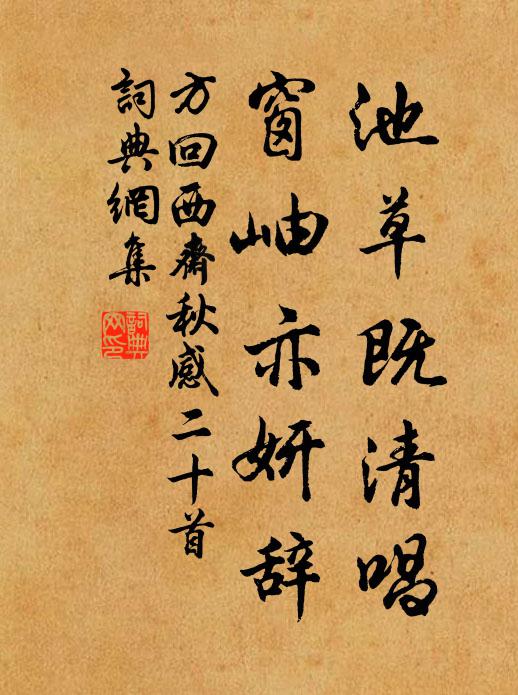 池草既清唱
窗岫亦妍辞
方回西斋秋感二十首
詞典網集
詞典
网印